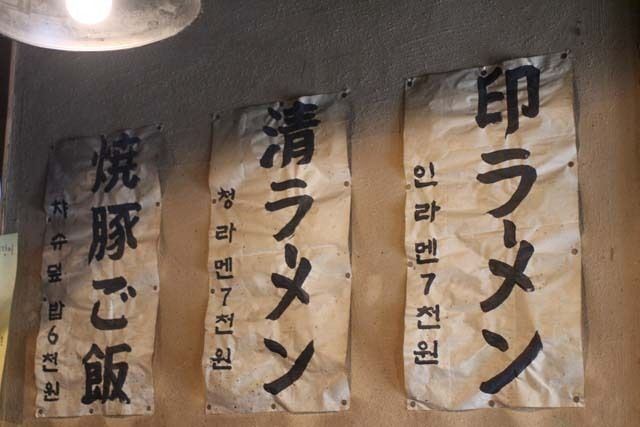 印ラーメン
인라멘7천원
清ラーメン
청라멘7천원
焼豚ご飯
챠슈덮밥6천원